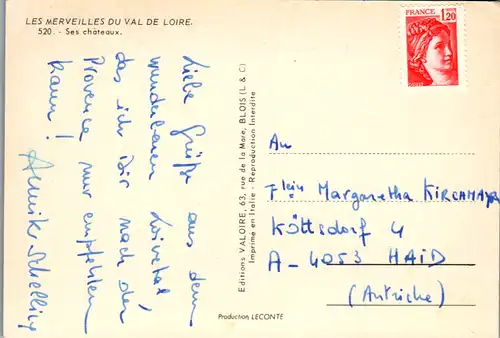 LES MERVEILLES DU VAL DE LOIRE.
520. - Ses châteaux.
Liebe Grüße aus dem
wunderbaren Loiretal,
das ich Dir nach der
Provence nur empfehlen
kann!
Annika Schelling
Editions VALOIRE, 63, rue de la Mare, BLOIS (L & C)
Imprimé en Italie - Reproduction Interdite
FRANCE
1,20
An
Flein Margaretha KIRCHMAYR
Köttsdorf 4
A-4053 HAID
(Autriche)
Production LECONTE